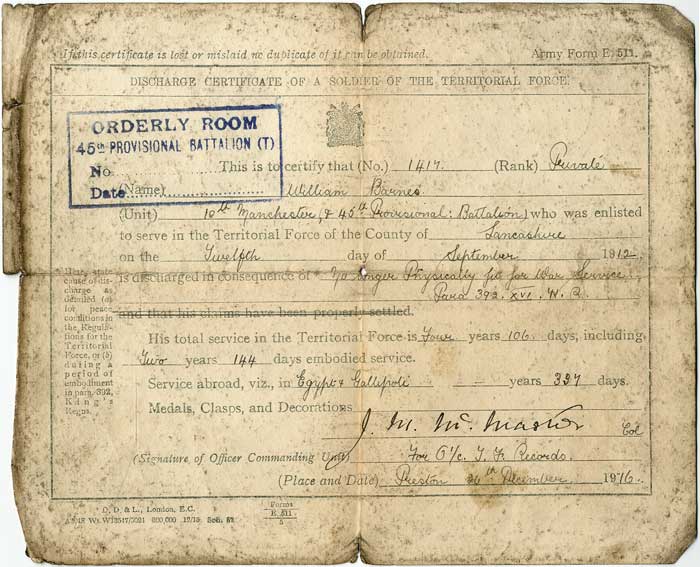 If this certificate is lost or mislaid no duplicate of it can be obtained. Army Form E. 511.
DISCHARGE CERTIFICATE OF A SOLDIER OF THE TERRITORIAL FORCE.
ORDERLY ROOM
45th PROVISIONAL BATTALION (T)
No.
Date
This is to certify that (No.) 1417. (Rank) Private
(Name) William Barnes
(Unit) 10th Manchester, & 45th Provisional: Battalion) who was enlisted
to serve in the Territorial Force of the County of Lancashire
on the Twelfth day of September 1912
is discharged in consequence of * No longer Physically fit for War Service
Para 392. XVI. K. R.
and that his claims have been properly settled.
His total service in the Territorial Force is Four years 106 days, including
Two years 144 days embodied service.
Service abroad, viz., in Egypt & Gallipoli — years 337 days.
Medals, Clasps, and Decorations
J. M. McMaster Col
(Signature of Officer Commanding Unit) For O i/c. T. F. Records.
(Place and Date) Preston 26th December 1916.
* Here state
cause of dis-
charge as
detailed (a)
for peace
conditions in
the Regula-
tions for the
Territorial
Force, or (b)
during a
period of
embodiment
in para. 392,
King's
Regns.
D. D. & L., London, E.C.
Wt. W13547/5021 800,000 12/15 Sch. 52
Forms
E. 511
5